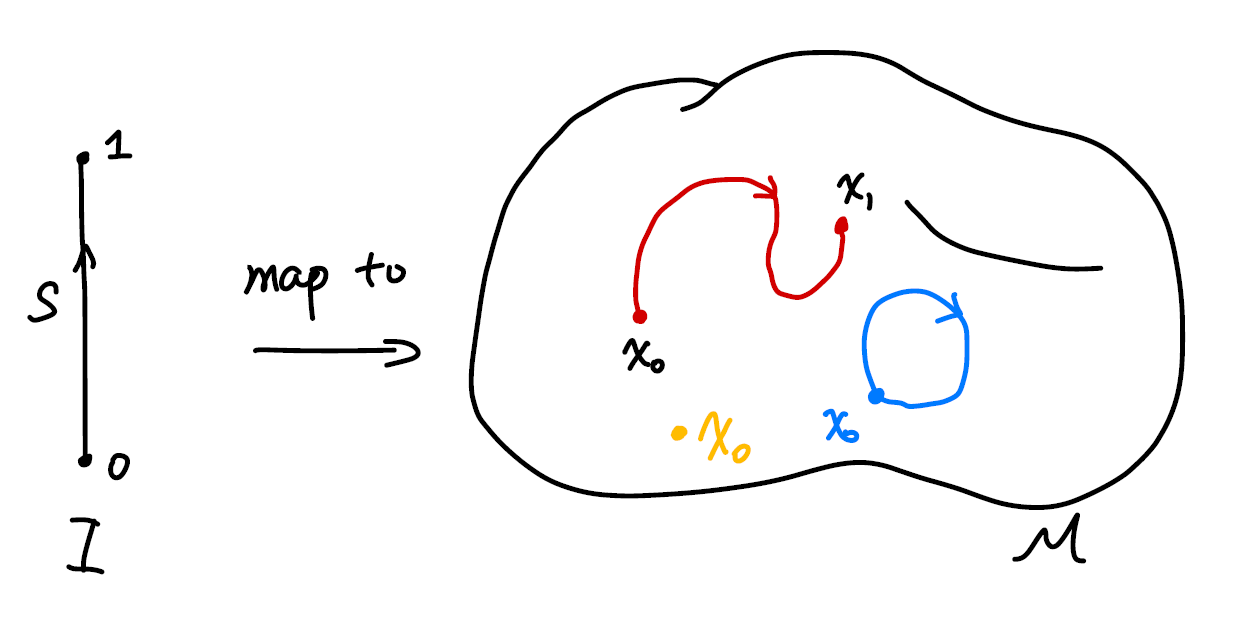 1
S
0
I
map to
x₀
x₁
x₀
x₀
M